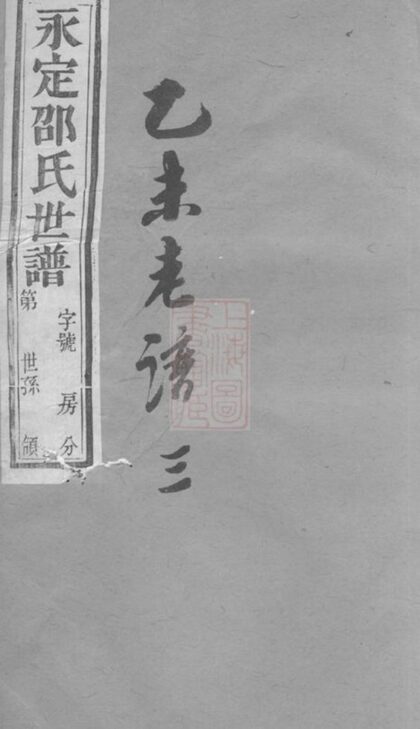 乙未老譜三
上海圖書館藏
永定邵氏世譜
字號 房分
第 世孫 領